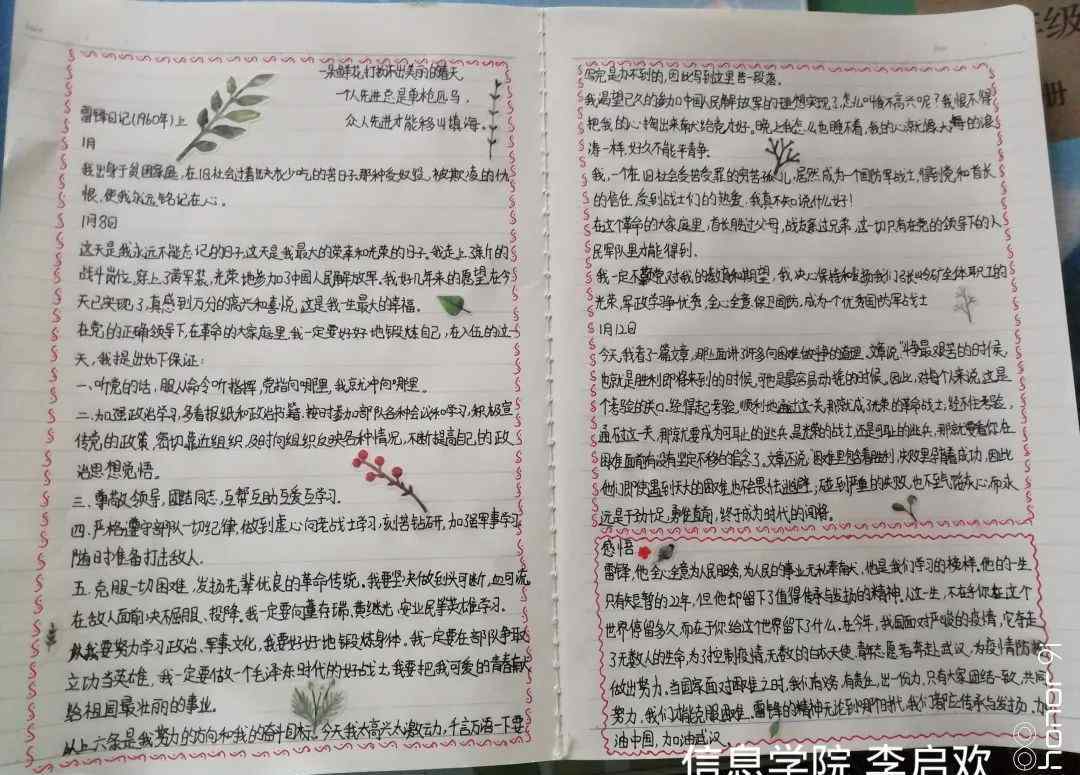 一朵鲜花打扮不出美丽的春天,
一个人先进总是单枪匹马,
众人先进才能移山填海。
雷锋日记(1960年)上
1月
我出身于贫困家庭,在旧社会过着缺衣少吃的苦日子。那种受奴役、被欺凌的仇
恨,使我永远铭记在心。
1月8日
这天是我永远不能忘记的日子,这天是我最大的荣幸和光荣的日子。我走上了新的
战斗岗位,穿上了黄军装,光荣地参加了中国人民解放军。我好几年来的愿望在今
天已实现了,真感到万分的高兴和喜悦,这是我一生最大的幸福。
在党的正确领导下,在革命的大家庭里,我一定要好好地锻炼自己,在入伍的这一
天,我提出如下保证:
一、听党的话,服从命令听指挥,党指向哪里,我就冲向哪里。
二、加强政治学习,多看报纸和政治书籍,按时参加部队各种会议和学习,积极宣
传党的政策,密切靠近组织,及时向组织反映各种情况,不断提高自己的政
治思想觉悟。
三、尊敬领导,团结同志,互帮互助互爱互学习。
四、严格遵守部队一切纪律,做到虚心向老战士学习,刻苦钻研,加强军事学习,
随时准备打击敌人。
五、克服一切困难,发扬先辈优良的革命传统。我要坚决做到头可断,血可流,
在敌人面前决不屈服、投降。我一定要向董存瑞、黄继光、安业民等英雄学习。
我要努力学习政治、军事文化,我要好好地锻炼身体。我一定要在部队争取
立功当英雄,我一定要做一个毛泽东时代的好战士,我要把我可爱的青春献
给祖国最壮丽的事业。
以上六条是我努力的方向和我的奋斗目标。今天我太高兴太激动,千言万语一下要
写完是办不到的,因此写到这里告一段落。
我渴望已久的参加中国人民解放军的理想实现了,怎么叫我不高兴呢?我恨不得
把我的心掏出来献给党才好。晚上我怎么也睡不着,我的心就像大海的浪
涛一样,好久不能平静。
我,一个在旧社会受苦受罪的穷苦孤儿,居然成为一个国防军战士,得到党和首长
的信任,受到战士们的热爱,我真不知说什么好!
在这个革命的大家庭里,首长胜过父母,战友赛过兄弟,这一切只有在党的领导下的人
民军队里才能得到。
我一定不辜负党对我的教育和期望,我决心保持和发扬我们张岭矿全体职工的
光荣,军政学习争优秀,全心全意保卫国防,成为个优秀国防军战士
1月12日
今天,我看了一篇文章,那上面讲了许多向困难做斗争的道理。文章说:"斗争最艰苦的时候,
也就是胜利即将来到的时候,可也是最容易动摇的时候。因此,对每个人来说,这是
个考验的关口。经得起考验,顺利地通过这一关,那就成了光荣的革命战士;经不住考验,
通不过这一关,那就要成为可耻的逃兵。是光荣的战士还是可耻的逃兵,那就要看你在
困难面前有没有坚定不移的信念了。文章还说:困难里包含着胜利,失败里孕育着成功,因此
他们即使遇到天大的困难也不会畏怯逃避;碰到严重的失败,也不至气馁灰心,而永
远是干劲十足,勇往直前,终于成为时代的闯将。
感悟
雷锋,他全心全意为人民服务,为人民的事业无私奉献,他是我们学习的榜样。他的一生
只有短暂的22年,但他却留下了值得传承与发扬的精神。人这一生,不在乎你在这个
世界停留多久,而在于你给这个世界留下了什么。在今年,我国面对严峻的疫情,它夺走
了无数人的生命,为了控制疫情,无数的白衣天使、青年志愿者奔赴武汉,为疫情防控
做出努力。当国家面对困难之时,我们有义务,有责任,出一份力,只有大家团结一致,共同
努力,我们才能克服困难。雷锋的精神无论到哪个时代,我们都应传承与发扬,加
油中国,加油武汉。
信息学院 李启欢
honor 9i